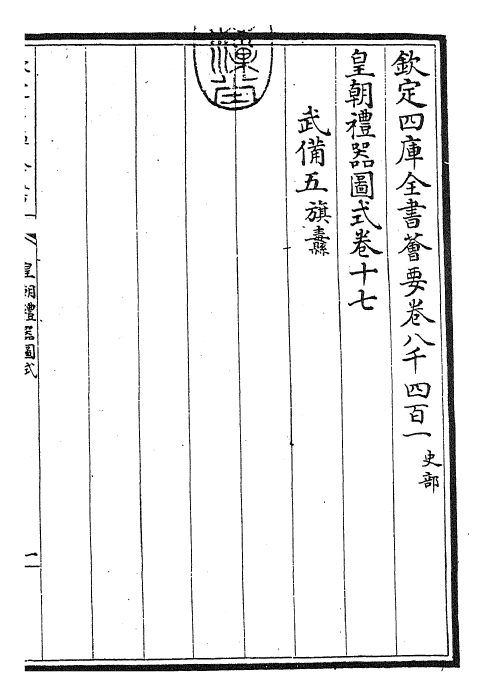 欽定四庫全書薈要卷八千四百一 史部
皇朝禮器圖式卷十七
武備五 旗纛
皇朝禮器圖式
一